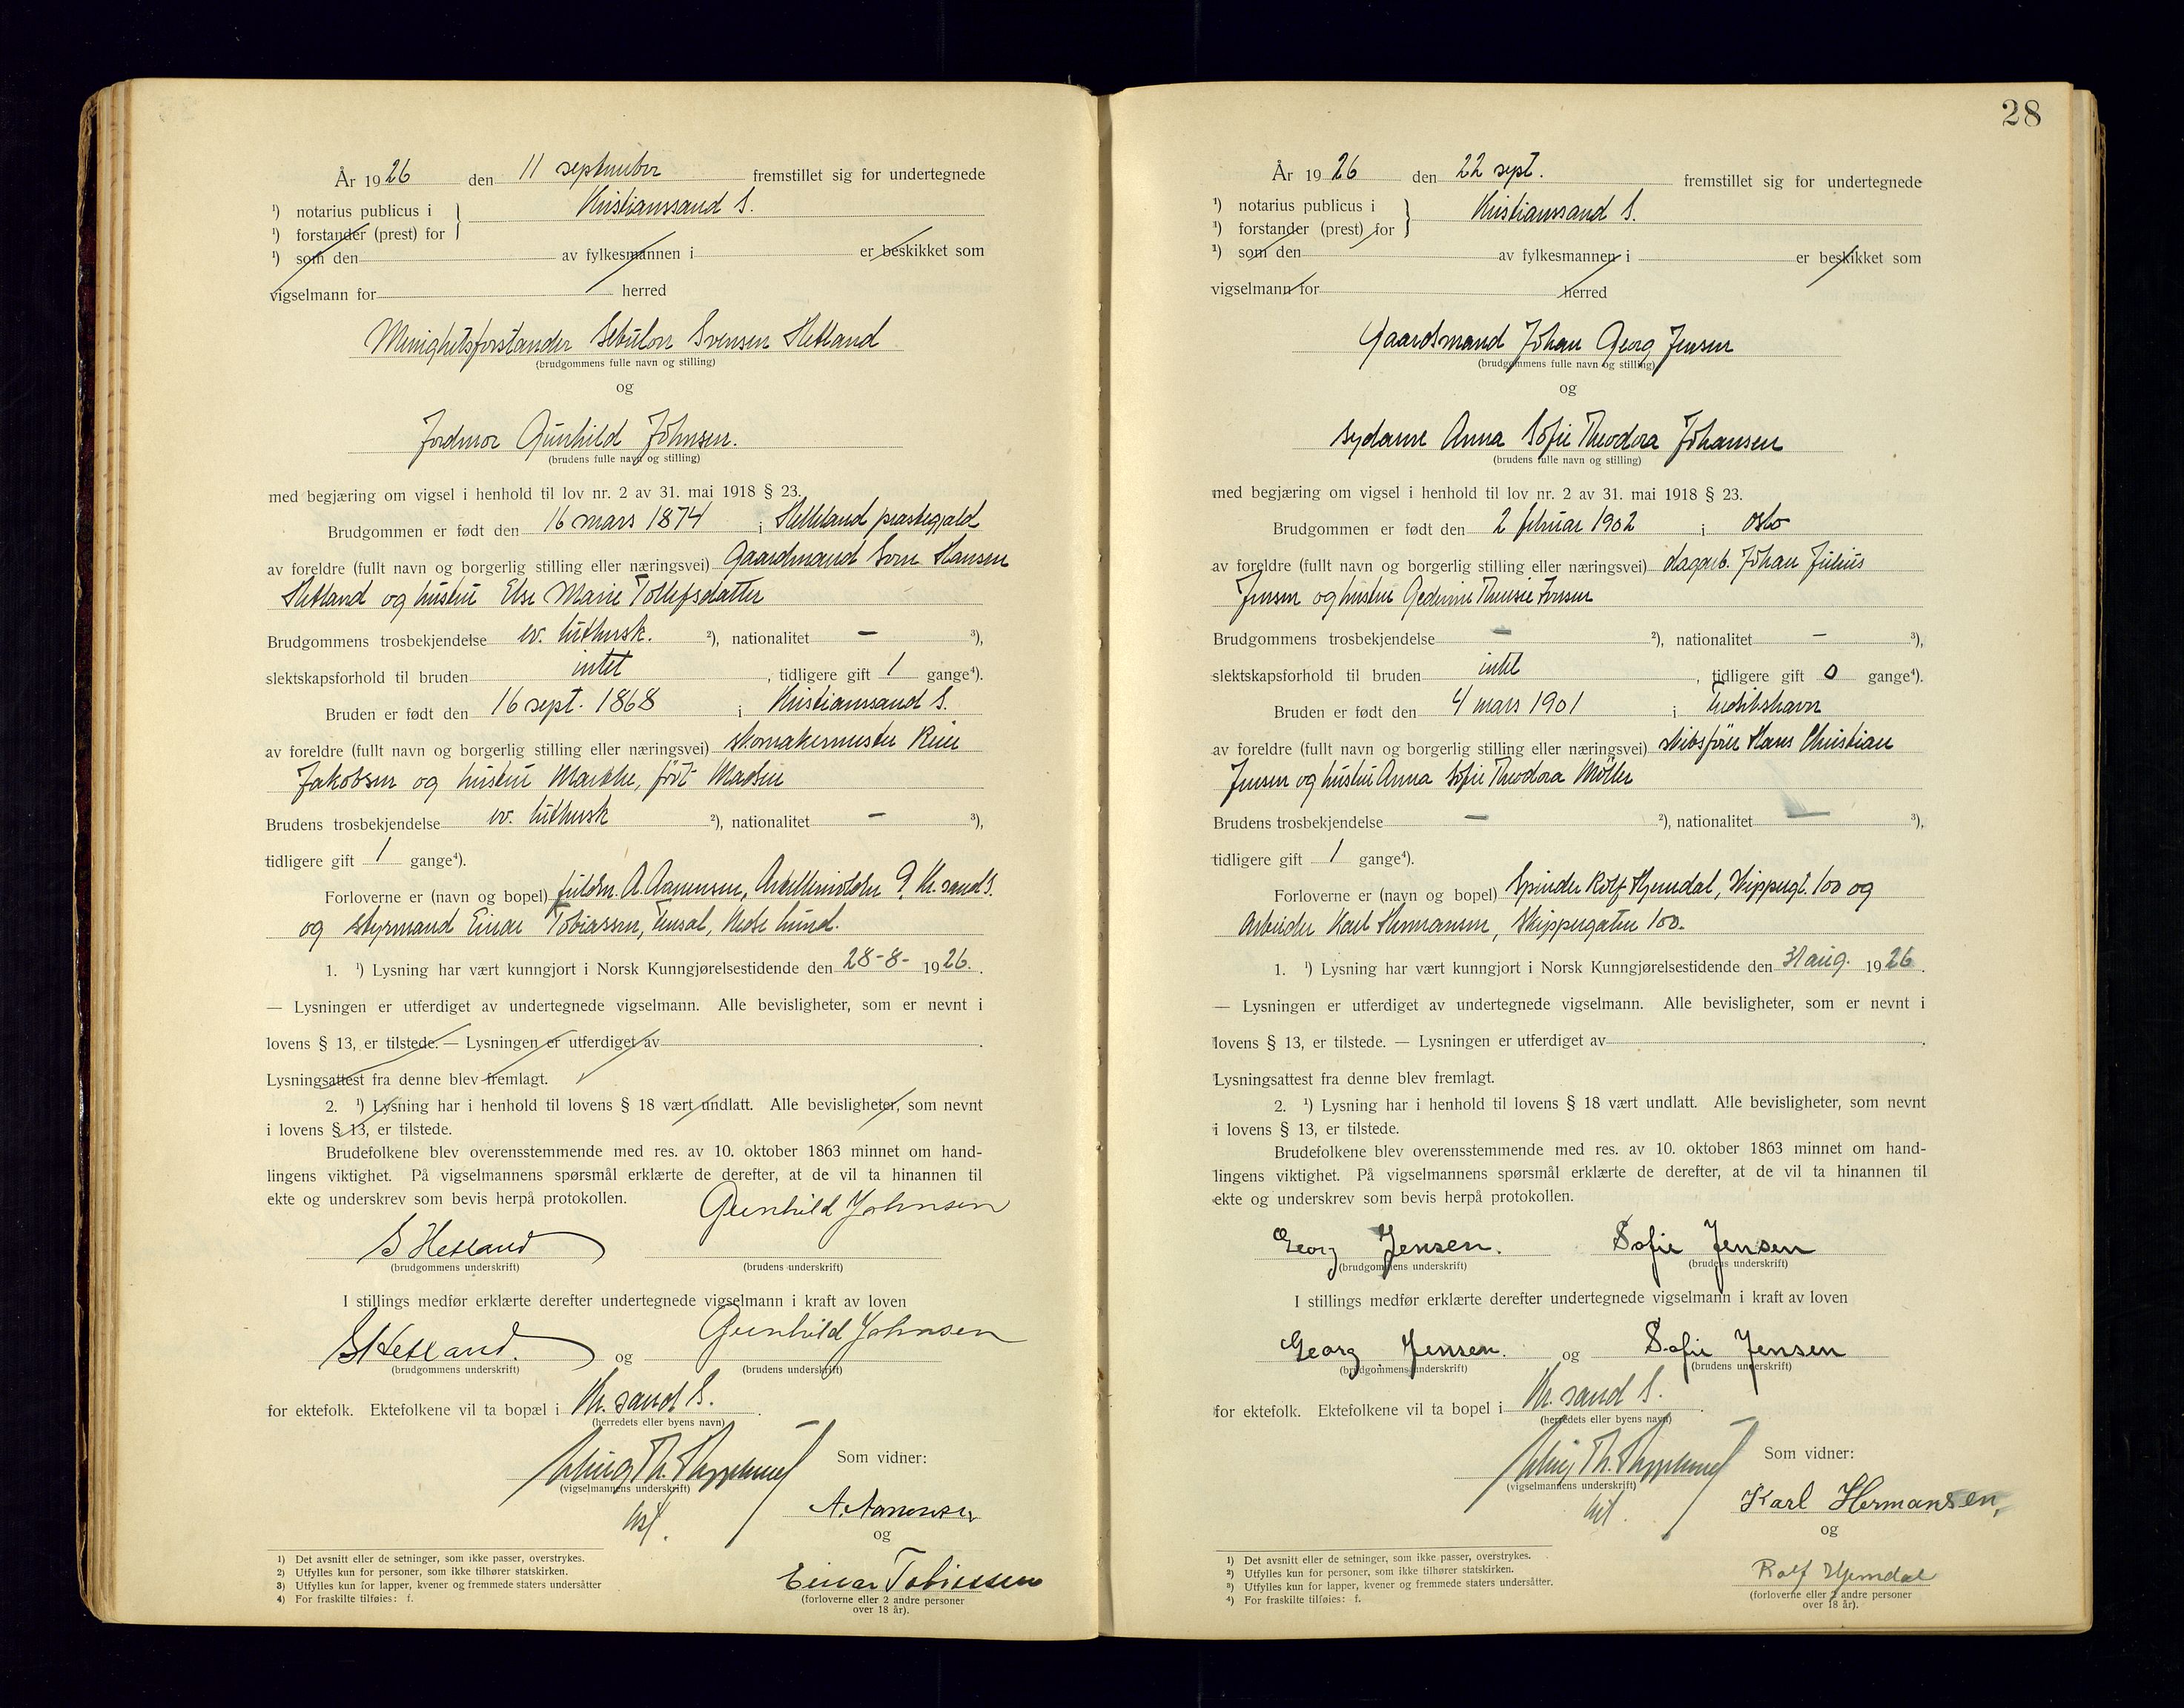 År 1926 den 11 september fremstillet sig for undertegnede
¹) notarius publicus i } Kristianssand S.
¹) forstander (prest) for
¹) som den av fylkesmannen i er beskikket som
vigselmann for herred
Menighetsforstander Sebulon Svensen Hetland
(brudgommens fulle navn og stilling)
og
Jordmor Gunhild Johnsen.
(brudens fulle navn og stilling)
med begjæring om vigsel i henhold til lov nr. 2 av 31. mai 1918 § 23.
Brudgommen er født den 16 mars 1874 i Helleland prestegjeld
av foreldre (fullt navn og borgerlig stilling eller næringsvei) Gaardmand Sven Hansen
Hetland og hustru Else Marie Tollefsdatter
Brudgommens trosbekjendelse ev. luthersk. ²), nationalitet — ³),
slektskapsforhold til bruden intet, tidligere gift 1 gange⁴).
Bruden er født den 16 sept. 1868 i Kristianssand S.
av foreldre (fullt navn og borgerlig stilling eller næringsvei) skomakermester Reier
Jakobsen og hustru Marthe, født Madsen
Brudens trosbekjendelse ev. luthersk ²), nationalitet — ³),
tidligere gift 1 gange⁴).
Forloverne er (navn og bopel) A. Aanensen, 9. Kr.sand S.
og styrmand Einar Tobiassen, Nedre Lund.
1. ¹) Lysning har vært kunngjort i Norsk Kunngjørelsestidende den 28-8- 1926.
— Lysningen er utferdiget av undertegnede vigselmann. Alle bevisligheter, som er nevnt i
lovens § 13, er tilstede. — Lysningen er utferdiget av .
Lysningsattest fra denne blev fremlagt.
2. ¹) Lysning har i henhold til lovens § 18 vært undlatt. Alle bevisligheter, som nevnt
i lovens § 13, er tilstede.
Brudefolkene blev overensstemmende med res. av 10. oktober 1863 minnet om hand-
lingens viktighet. På vigselmannens spørsmål erklærte de derefter, at de vil ta hinannen til
ekte og underskrev som bevis herpå protokollen.
S Hetland Gunhild Johnsen
(brudgommens underskrift) (brudens underskrift)
I stillings medfør erklærte derefter undertegnede vigselmann i kraft av loven
S Hetland. og Gunhild Johnsen
(brudgommens underskrift) (brudens underskrift)
for ektefolk. Ektefolkene vil ta bopæl i Kr.sand S.
(herredets eller byens navn)
Som vidner:
(vigselmannens underskrift)
A. Aanensen
og
Einar Tobiassen
(forloverne eller 2 andre personer
over 18 år).
1) Det avsnitt eller de setninger, som ikke passer, overstrykes.
2) Utfylles kun for personer, som ikke tilhører statskirken.
3) Utfylles kun for lapper, kvener og fremmede staters undersåtter
4) For fraskilte tilføies: f.
28
År 1926 den 22 sept. fremstillet sig for undertegnede
¹) notarius publicus i } Kristianssand S.
¹) forstander (prest) for
¹) som den av fylkesmannen i er beskikket som
vigselmann for herred
Gaardsmand Johan Georg Jensen
(brudgommens fulle navn og stilling)
og
sydame Anna Sofie Theodora Johansen
(brudens fulle navn og stilling)
med begjæring om vigsel i henhold til lov nr. 2 av 31. mai 1918 § 23.
Brudgommen er født den 2 februar 1902 i Oslo
av foreldre (fullt navn og borgerlig stilling eller næringsvei) dagarb. Johan Julius
Jensen og hustru Jensen
Brudgommens trosbekjendelse — ²), nationalitet — ³),
slektskapsforhold til bruden intet, tidligere gift 0 gange⁴).
Bruden er født den 4 mars 1901 i Fredrikshavn
av foreldre (fullt navn og borgerlig stilling eller næringsvei) skibsfører Hans Christian
Jensen og hustru Anna Sofie Theodora Møller
Brudens trosbekjendelse — ²), nationalitet — ³),
tidligere gift 1 gange⁴).
Forloverne er (navn og bopel) Rolf Hjemdal, Skippergt. 100 og
Arbeider Karl Hermansen, Skippergaten 100.
1. ¹) Lysning har vært kunngjort i Norsk Kunngjørelsestidende den 31 aug. 1926.
— Lysningen er utferdiget av undertegnede vigselmann. Alle bevisligheter, som er nevnt i
lovens § 13, er tilstede. — Lysningen er utferdiget av .
Lysningsattest fra denne blev fremlagt.
2. ¹) Lysning har i henhold til lovens § 18 vært undlatt. Alle bevisligheter, som nevnt
i lovens § 13, er tilstede.
Brudefolkene blev overensstemmende med res. av 10. oktober 1863 minnet om hand-
lingens viktighet. På vigselmannens spørsmål erklærte de derefter, at de vil ta hinannen til
ekte og underskrev som bevis herpå protokollen.
Georg Jensen. Sofie Jensen
(brudgommens underskrift) (brudens underskrift)
I stillings medfør erklærte derefter undertegnede vigselmann i kraft av loven
Georg Jensen. og Sofie Jensen
(brudgommens underskrift) (brudens underskrift)
for ektefolk. Ektefolkene vil ta bopel i Kr.sand S.
(herredets eller byens navn)
Som vidner:
(vigselmannens underskrift)
Karl Hermansen,
og
Rolf Hjemdal
(forloverne eller 2 andre personer
over 18 år).
1) Det avsnitt eller de setninger, som ikke passer, overstrykes.
2) Utfylles kun for personer, som ikke tilhører statskirken.
3) Utfylles kun for lapper, kvener og fremmede staters undersåtter.
4) For fraskilte tilføies: f.